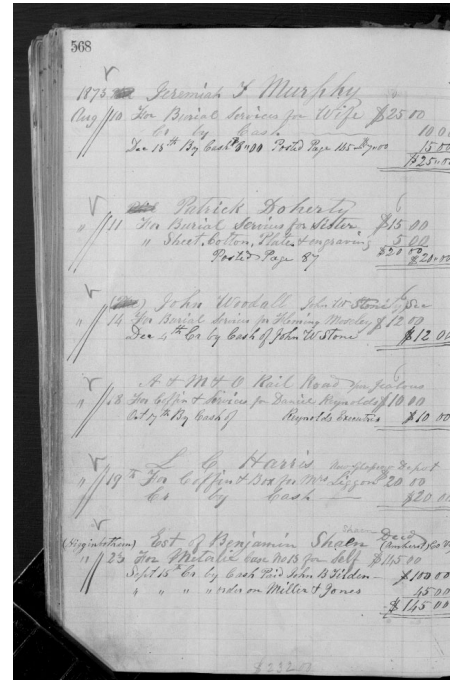 568
1873 Jeremiah F Murphy
Aug 10 For Burial Services for Wife $25 00
Cr by Cash 10 00
Dec 15th By Cash $8"00 Posted Page 145 - $7"00 15 00
$25"00
Patrick Doherty
" 11 For Burial Services for Sister $15 00
" Sheet, Cotton, Plate & engraving 5 00
$20 00
Posted Page 87 $20"00
John Woodall John W Stone
" 14 For Burial Service for Fleming Moseley $12 00
Dec 4th Cr by Cash of John W Stone $12 00
A & M & O Rail Road
" 18 For Coffin & Services for Daniel Reynolds $10 00
Oct 17th By Cash of Reynolds Executrix $10 00
L C Harris Depot
" 19th For Coffin & Box for Mrs Liggon 20 00
Cr by Cash $20 00
(Higginbotham) Est of Benjamin Shaen Decd
(Amherst) Co Va
" 23 For Metalic Case No 13 for Self $145 00
Sept 15th Cr by Cash Paid John B Tilden $100 00
" " " " order on Miller & Jones 45 00
$145 00